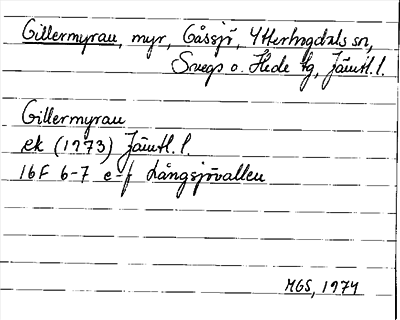 Gillermyran, myr, Gåssjö, Ytterhogdals sn,
Svegs o. Hede tg, Jämtl. l.
Gillermyran
ek (1973) Jämtl. l.
16F 6-7 e-f Långsjövallen
MGS, 1974